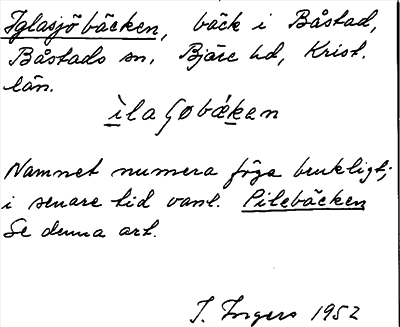 Iglasjöbäcken, bäck i Båstad,
Båstads sn, Bjäre hd, Krist.
län.
ìlaʃøbǽkan
Namnet numera föga brukligt;
i senare tid vanl. Pilebäcken
Se denna art.
I. Ingers 1952